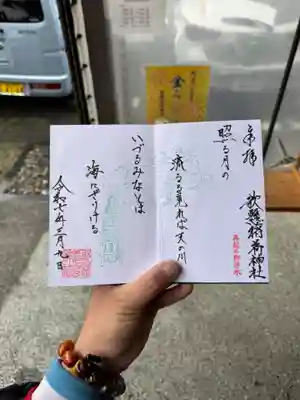 奉拝
歌懸稲荷神社
照る月の
流るる見れば天の川
いづるみなとは
海にざりける
令和七年三月九日